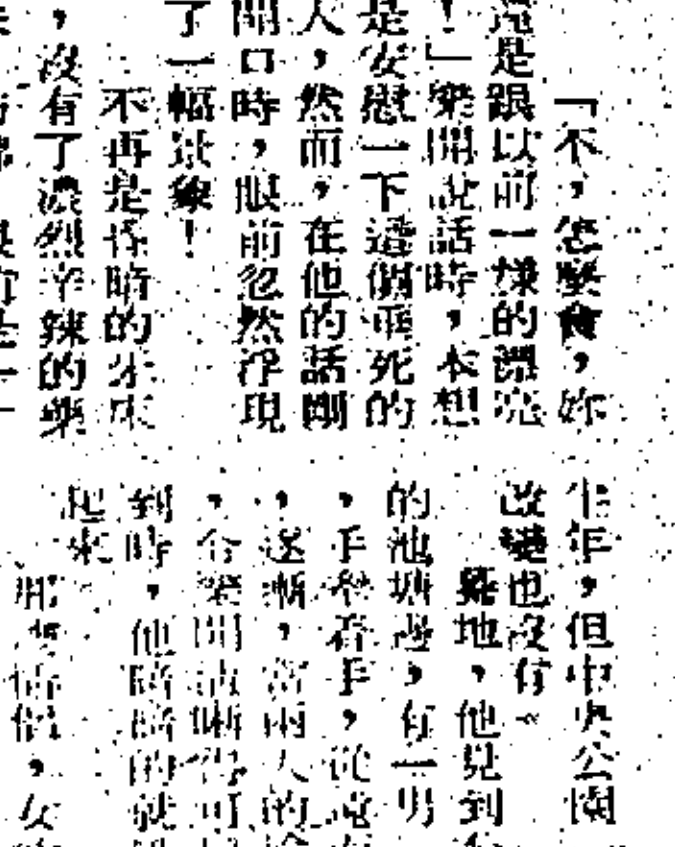 「不，怎麼會，妳
還是跟以前一樣的漂亮
！」樂開說話時，本想
是安慰一下這個垂死的
人，然而，在他的話剛
開口時，眼前忽然浮現
了一幅景象！
不再是昏暗的
，沒有了濃烈辛辣的藥
年，但中央公園
改變也沒有。
驀地，他見到
的池塘邊，有一男
，手牽著手，從遠
，逐漸，當兩人的
，令樂開清晰得可
到時，他暗暗的就
起來
那對情侶，女